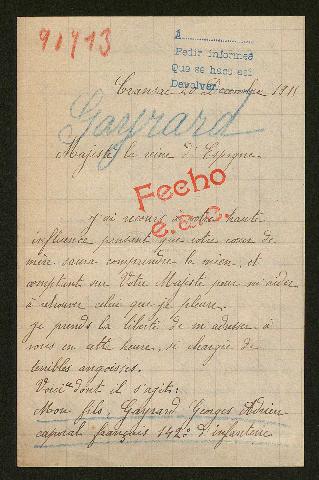 91413
A
Pedir informes
Que se hace así
Devolver
Cransac 20 Décembre 1918
Gayrard
Majesté la reine d'Espagne
Fecho
e.a.c.
j'ai recours à votre haute
influence pensant que votre cœur de
mère saura comprendre le mien, et
comptant sur Votre Majesté pour m'aider
à retrouver celui que je pleure.
je prends la liberté de m'adresser à
vous en cette heure, si chargée de
terribles angoisses.
Voici dont il s'agit:
Mon fils, Gayrard Georges Adrien
caporal français 142e d'infanterie